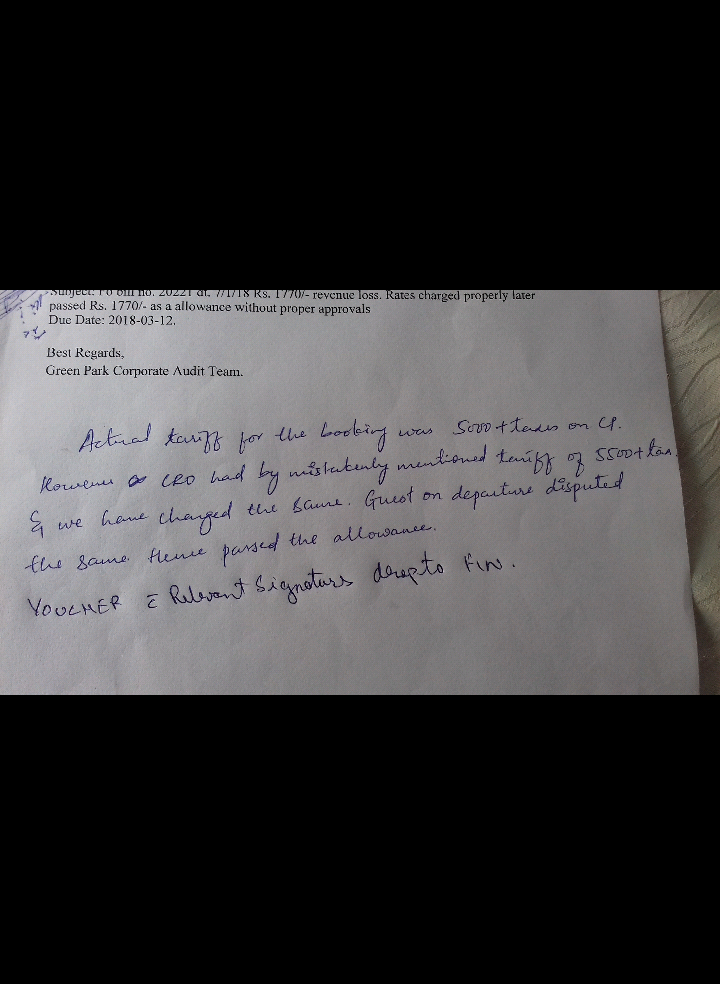 Subject: Fo bill no. 20221 dt. 7/1/18 Rs. 1770/- revenue loss. Rates charged properly later
passed Rs. 1770/- as a allowance without proper approvals
Due Date: 2018-03-12.
Best Regards,
Green Park Corporate Audit Team.
Actual tariff for the booking was 5000 + taxes on CP.
However CRO had by mistakenly mentioned tariff of 5500 + tax
& we have charged the same. Guest on departure disputed
the same. Hence passed the allowance.
VOUCHER c̄ Relevant Signatures to FIN.